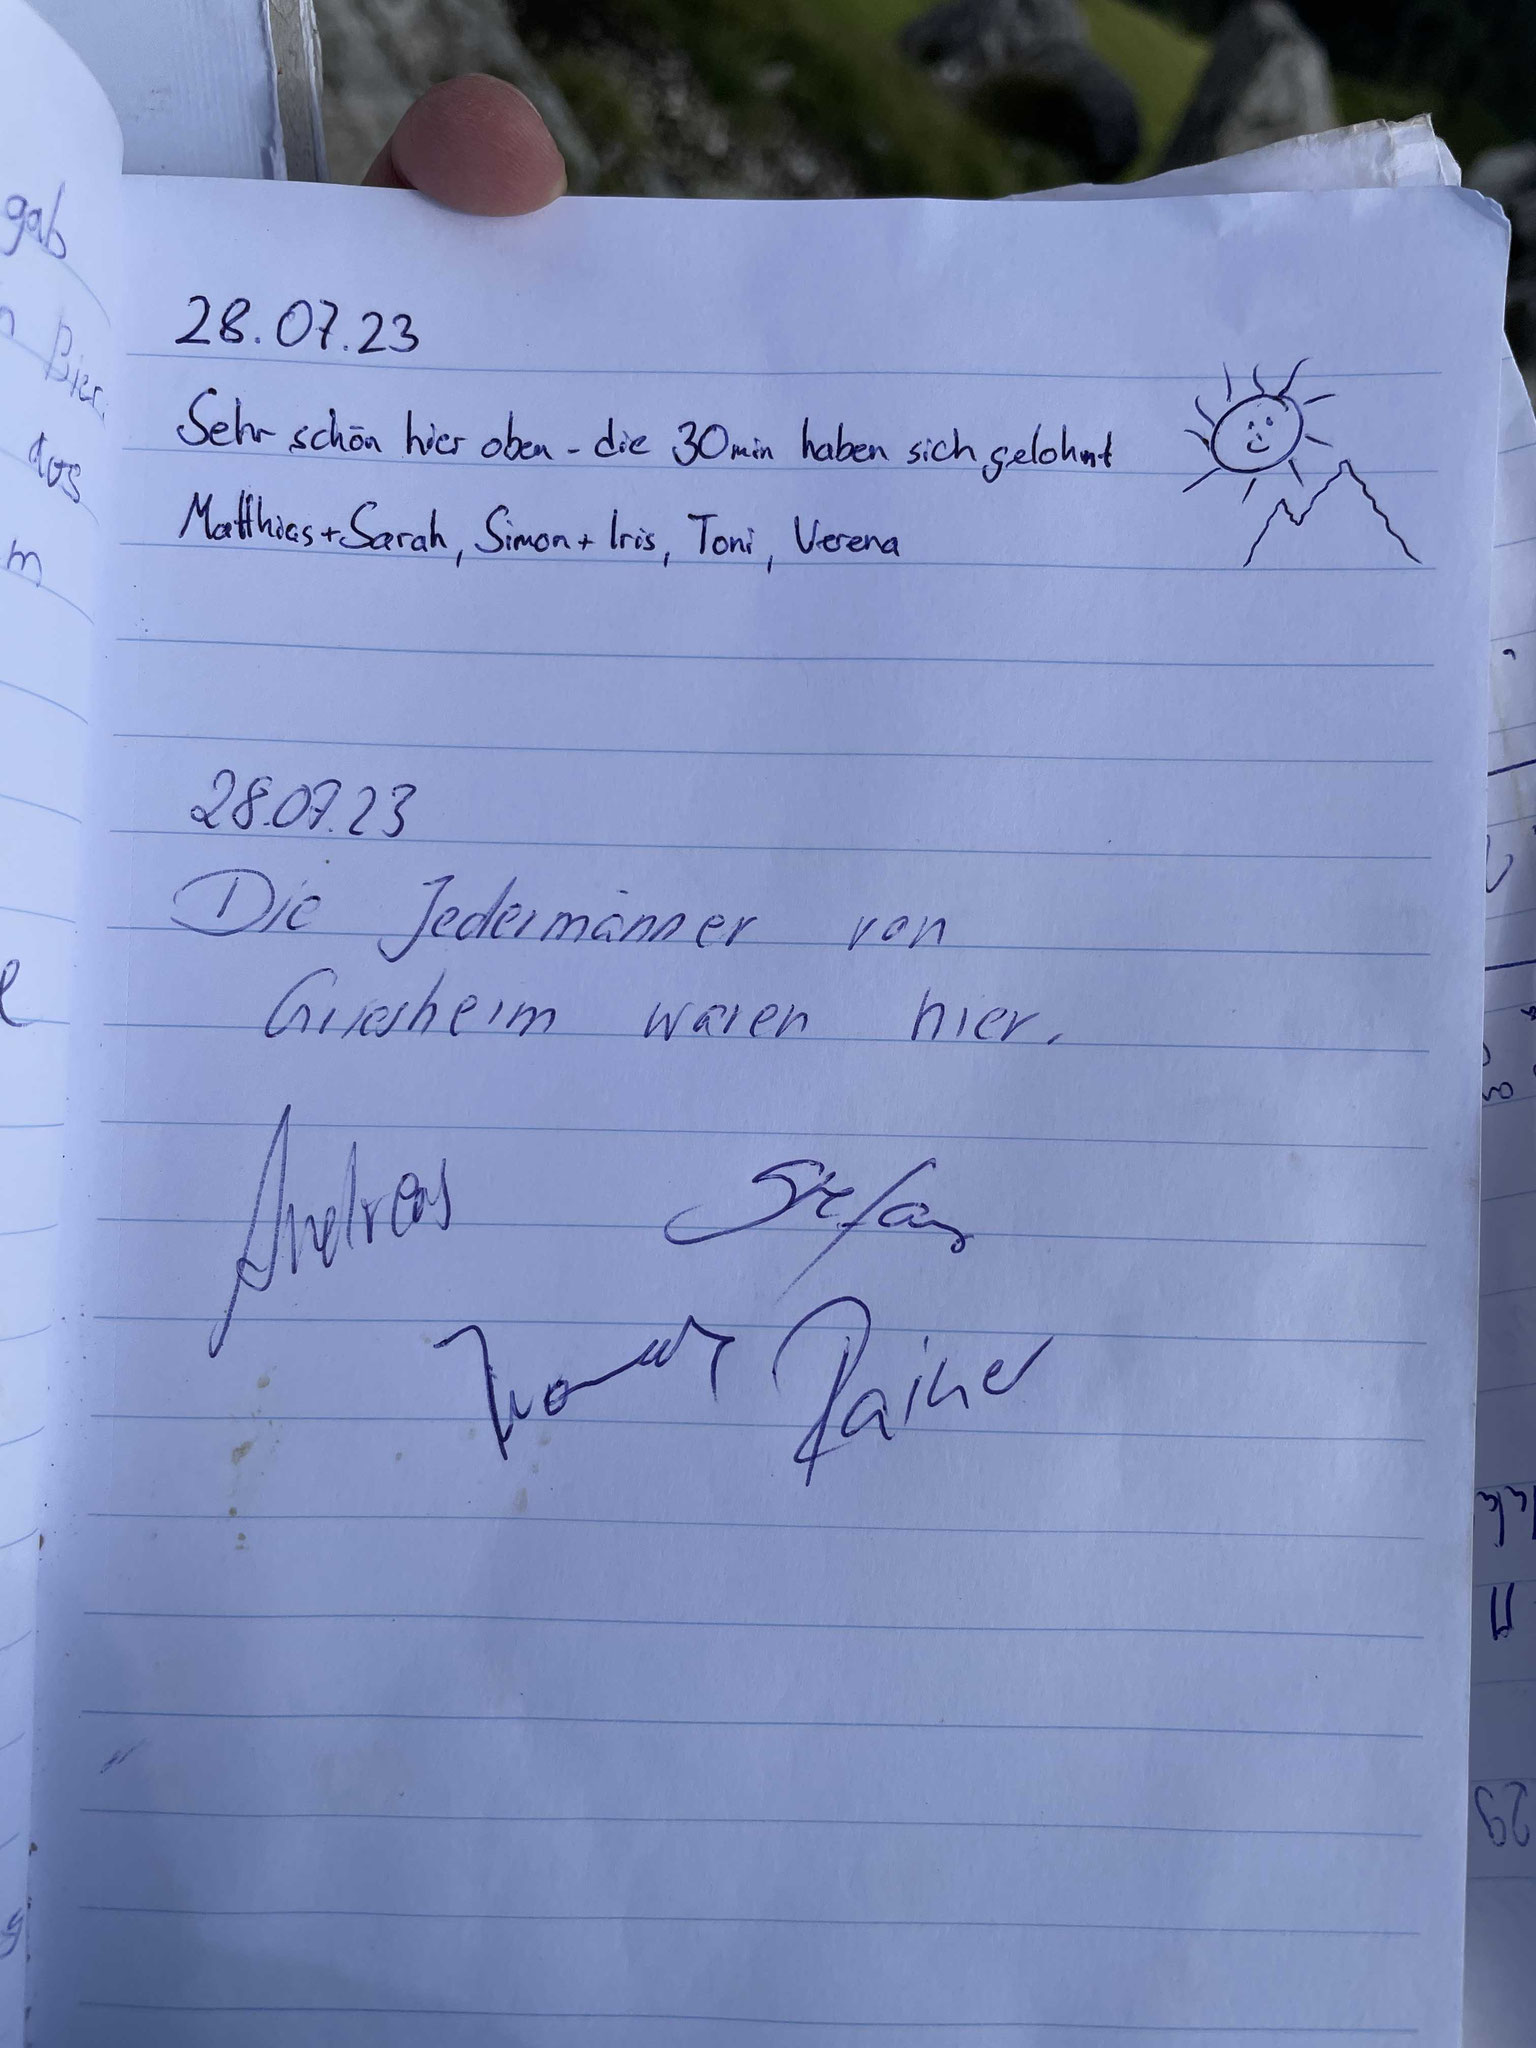 28.07.23
Sehr schön hier oben - die 30min haben sich gelohnt
Matthias + Sarah, Simon + Iris, Toni, Verena
28.07.23
Die Jedermänner von
Griesheim waren hier.
Andreas Stefan
Rainer
gab
Bier.
das
m